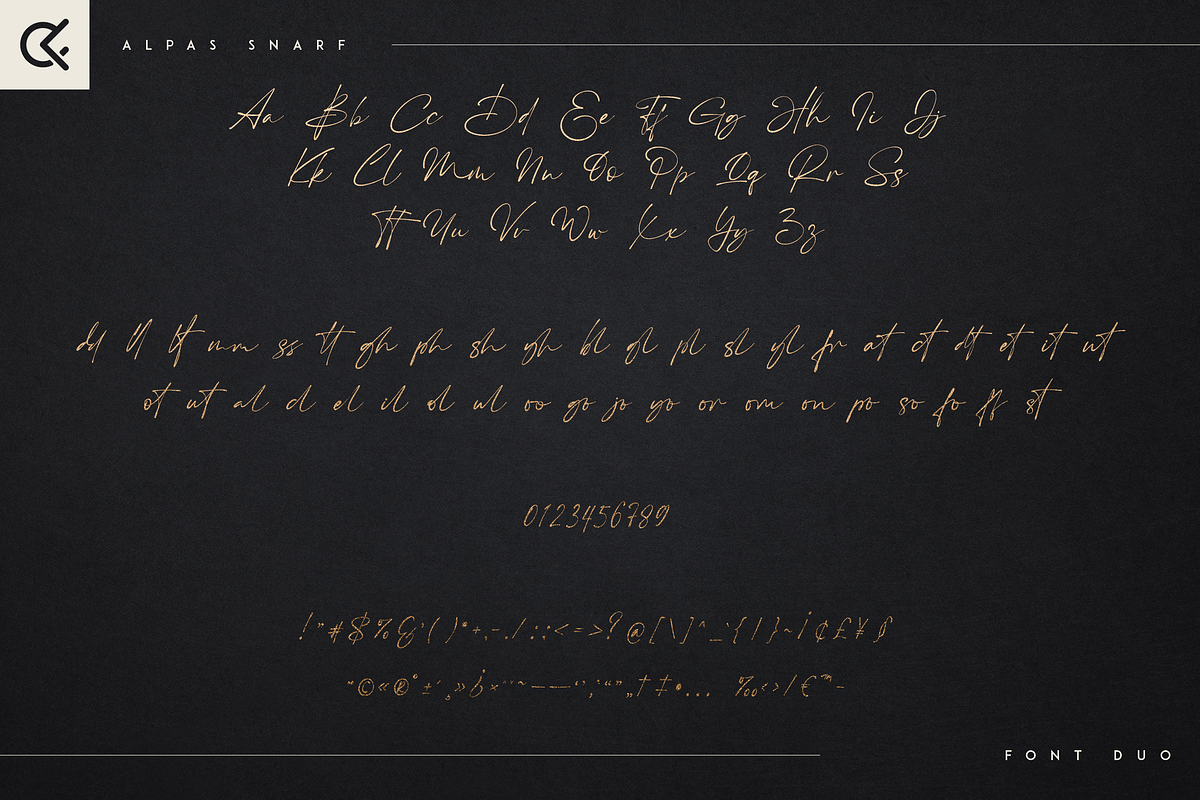 ALPAS SNARF
Aa Bb Cc Dd Ee Ff Gg Hh Ii Jj
Kk Ll Mm Nn Oo Pp Qq Rr Ss
Tt Uu Vv Ww Xx Yy Zz
dd ll lt mm ss tt gh ph sh yh bl gl pl sl yl fr at ct dt et it
ot ut al cl el il ol ul oo go jo yo or om on po so fo ff st
0123456789
!"#$%&'()*+,-./:;<=>?@[\]^_`{|}~¡¢£¥
©«®°±´¸»¿×
†‡•… ‰‹›/€™
FONT DUO